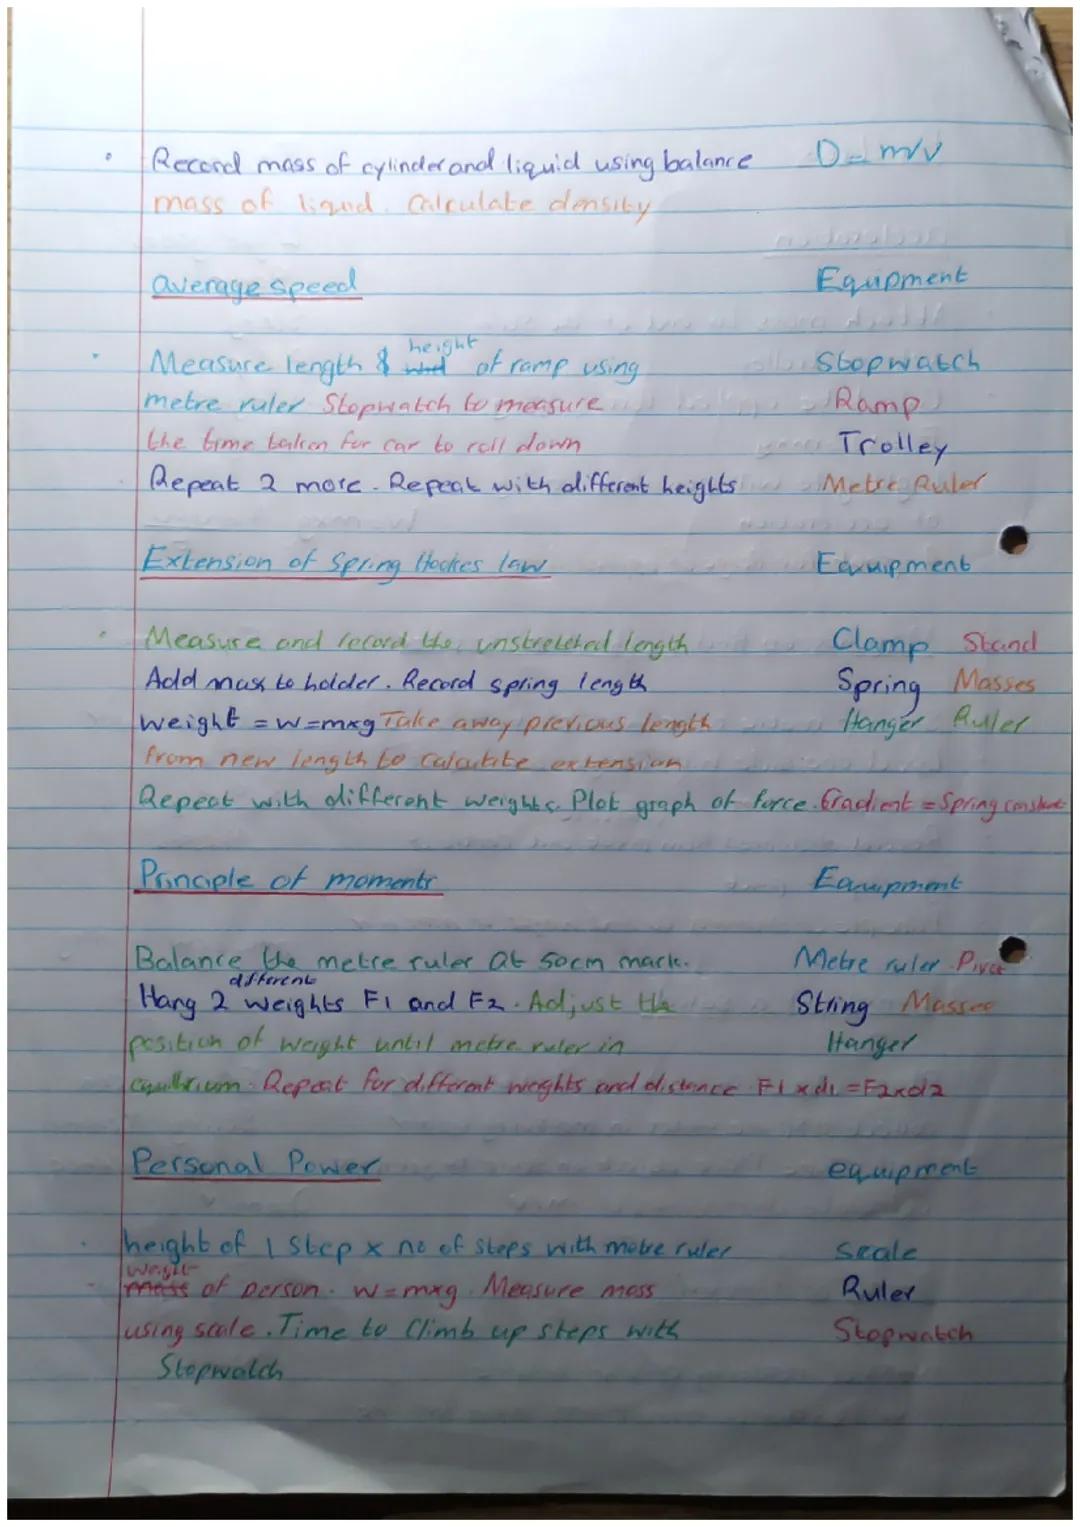 Record mass of cylinder and liquid using balance D=m/v
mass of liquid. Calculate density
average speed Equipment
Measure length & height of ramp using Stopwatch
metre ruler Stopwatch to measure Ramp
the time taken for car to roll down Trolley
Repeat 2 more. Repeat with different heights Metre Ruler
Extension of Spring Hookes law Equipment
Measure and record the unstretched length Clamp Stand
Add mass to holder. Record spring length Spring Masses
Weight = W=mxg Take away previous length Hanger Ruler
from new length to calculate extension
Repeat with different weights. Plot graph of force. Gradient = Spring constant
Principle of moments Equipment
Balance the metre ruler at 50cm mark. Metre ruler Pivot
different
Hang 2 weights F1 and F2. Adjust the String Masses
position of weight until metre ruler in Hanger
equilibrium. Repeat for different weights and distance F1 x d1 = F2xd2
Personal Power equipment
height of 1 Step x no of steps with metre ruler Scale
weight
mass of person. W=mxg. Measure mass Ruler
using scale. Time to Climb up steps with Stopwatch
Stopwatch